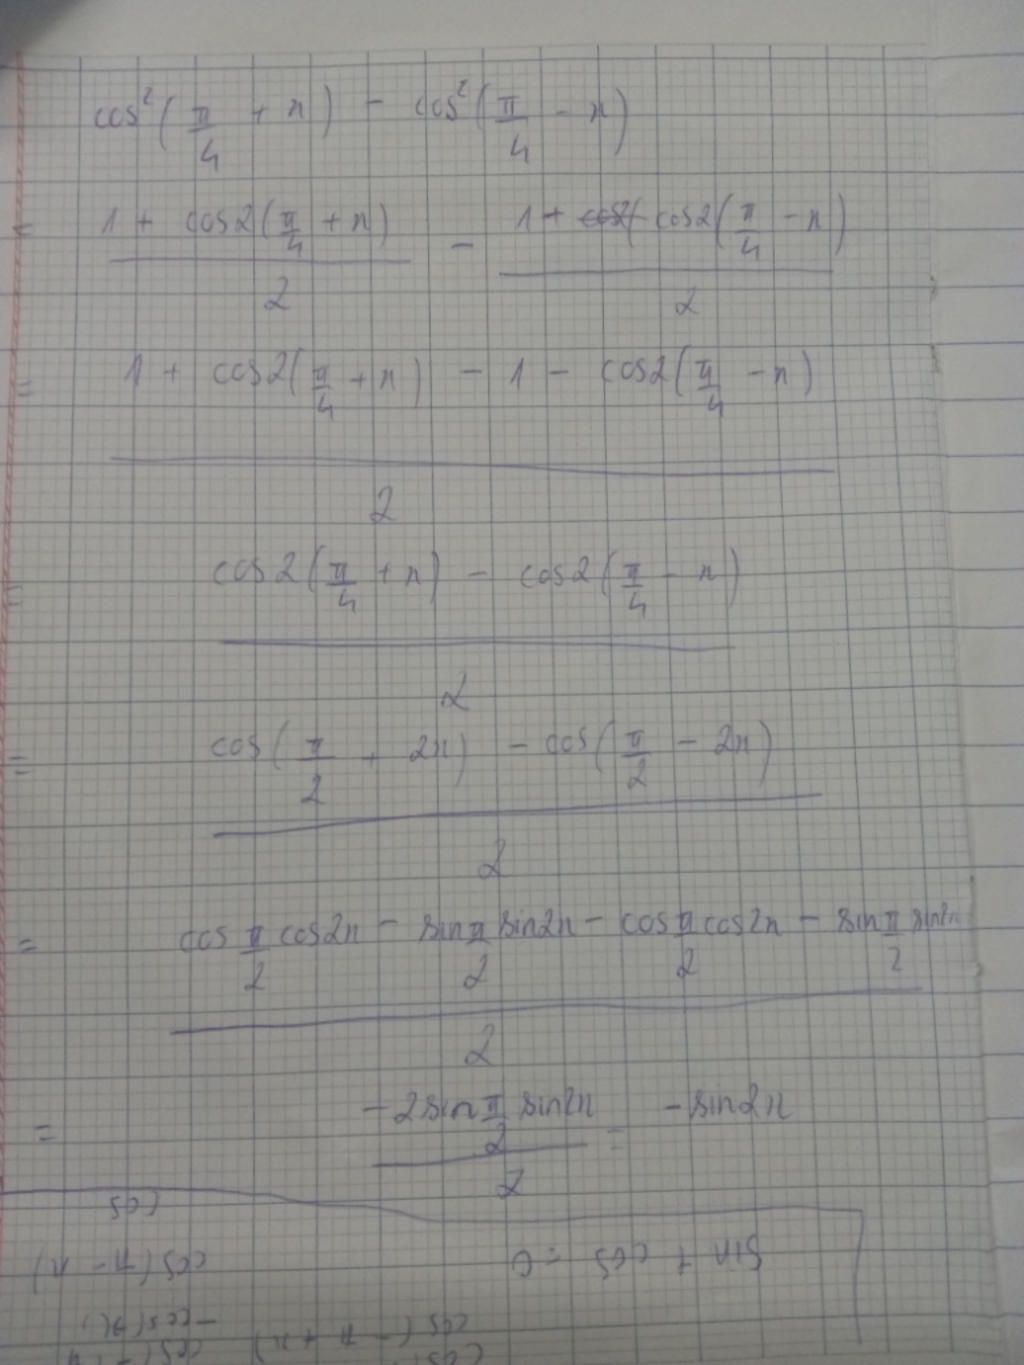 cos²(π/4 + x) - cos²(π/4 - x)
= (1 + cos2(π/4 + x))/2 - (1 + cos2(π/4 - x))/2
= (1 + cos2(π/4 + x) - 1 - cos2(π/4 - x))/2
= (cos2(π/4 + x) - cos2(π/4 - x))/2
= (cos(π/2 + 2x) - cos(π/2 - 2x))/2
= (cos π/2 cos2x - sin π/2 sin2x - cos π/2 cos2x - sin π/2 sin2x)/2
= (-2sin π/2 sin2x)/2 = -sin2x
cos
sin + cos = 0